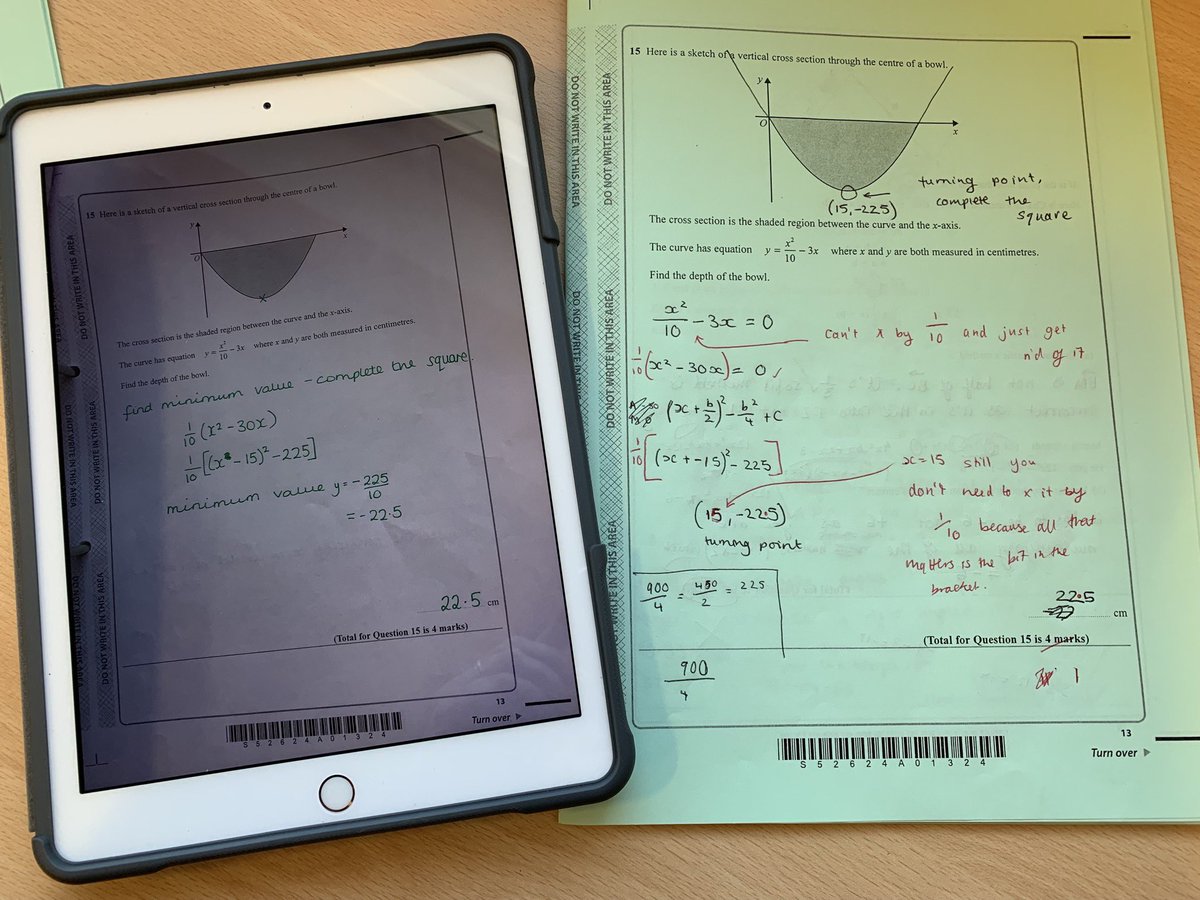 DO NOT WRITE IN THIS AREA
15 Here is a sketch of a vertical cross section through the centre of a bowl.
y
O
x
The cross section is the shaded region between the curve and the x-axis.
The curve has equation y = x²/10 – 3x where x and y are both measured in centimetres.
Find the depth of the bowl.
find minimum value – complete the square.
1/10 (x² – 30x)
1/10 [(x – 15)² – 225]
minimum value y = – 225/10
= – 22.5
22.5 cm
(Total for Question 15 is 4 marks)
13
Turn over
S 5 2 6 2 4 A 0 1 3 2 4
DO NOT WRITE IN THIS AREA
DO NOT WRITE IN THIS AREA
DO NOT WRITE IN THIS AREA
15 Here is a sketch of a vertical cross section through the centre of a bowl.
y
O
x
turning point,
complete the
square
(15, -225)
The cross section is the shaded region between the curve and the x-axis.
The curve has equation y = x²/10 – 3x where x and y are both measured in centimetres.
Find the depth of the bowl.
x²/10 – 3x = 0
can't x by 1/10 and just get
rid of it
1/10 (x² – 30x) = 0
(x + b/2)² – b²/4 + c
1/10 [(x + -15)² – 225]
x = 15 still you
don't need to x it by
1/10 because all that
matters is the bit in the
bracket.
(15, -22.5)
turning point
900/4 = 450/2 = 225
22.5 cm
(Total for Question 15 is 4 marks)
900/4
1
13
Turn over
S 5 2 6 2 4 A 0 1 3 2 4